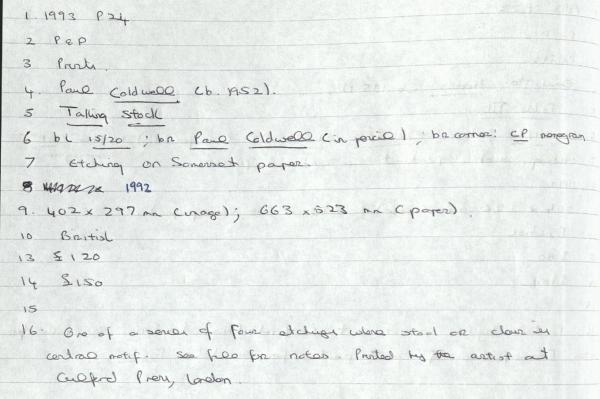 1. 1993 P24
2 P&P
3 Prints.
4. Paul Coldwell (b. 1952).
5 Taking Stock
6 bl 15/20 ; br Paul Coldwell (in pencil) ; br corner: CP monogram
7 Etching on Somerset paper.
8 1992
9. 402 x 297 mm (image); 663 x 523 mm (paper).
10 British
13 £120
14 £150
15
16. One of a series of four etchings where stool or chair is
central motif. See file for notes. Printed by the artist at
Culford Press, London.